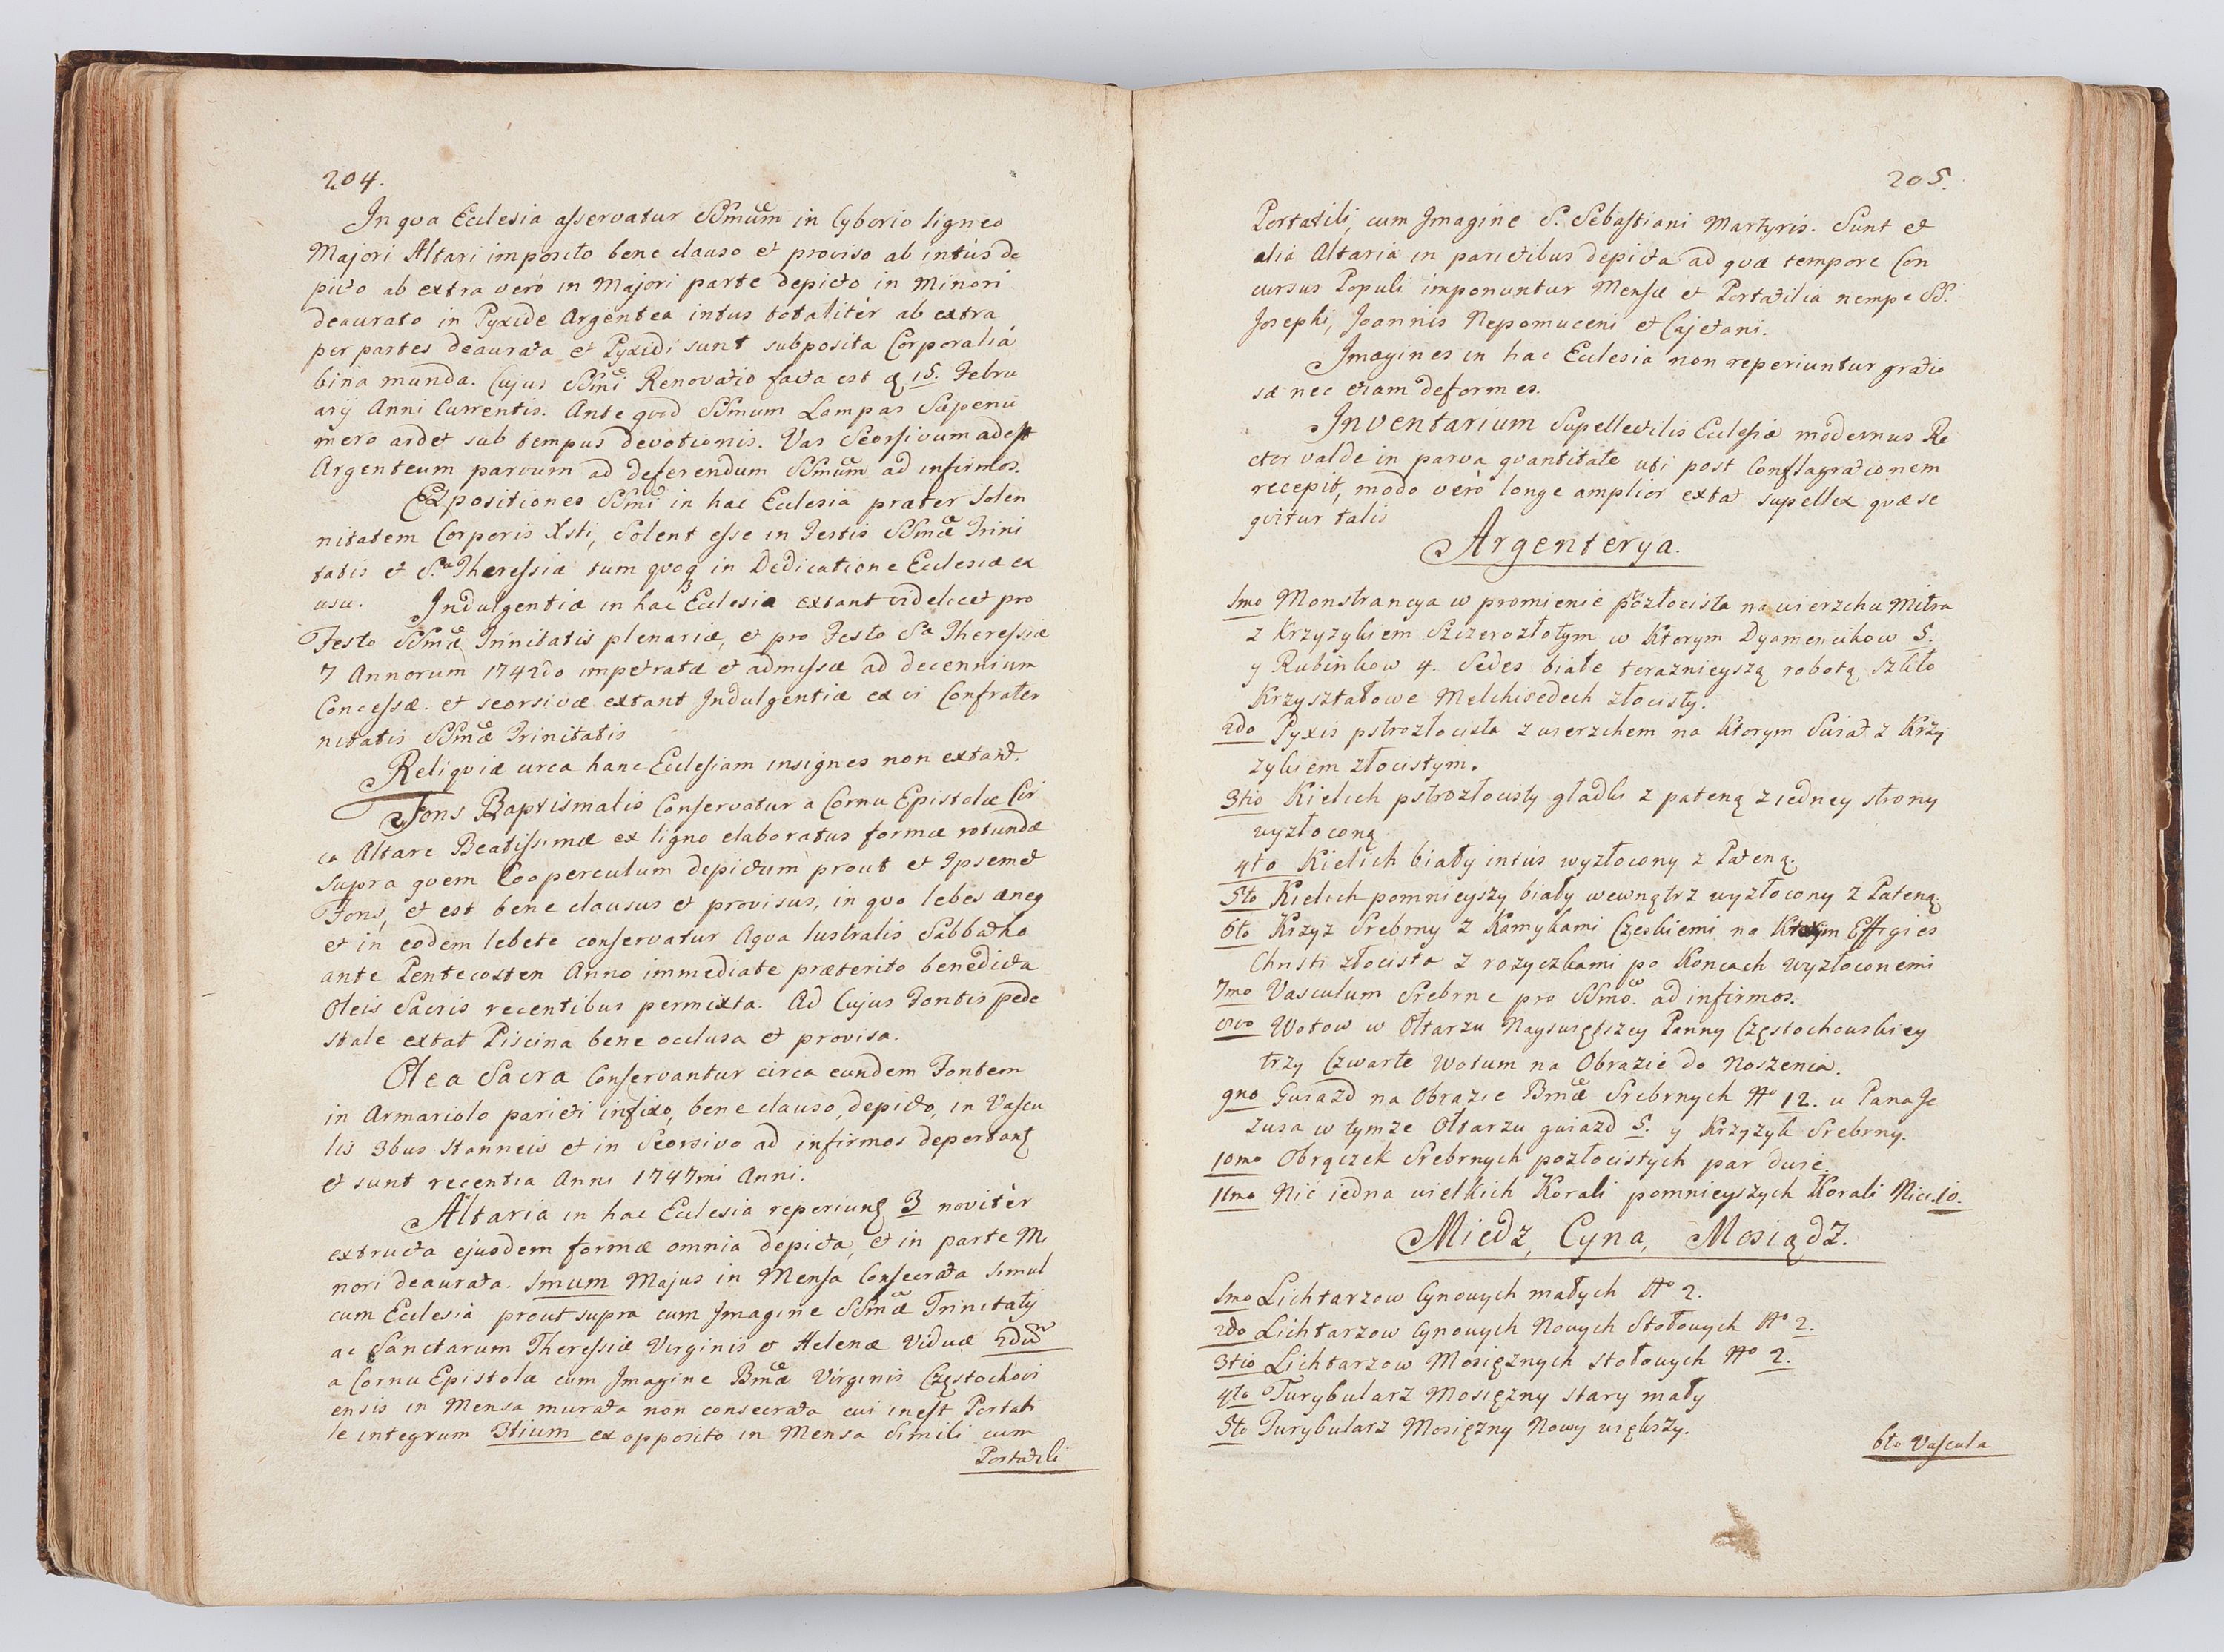 204.
In qva Ecclesia asservatur SSmum in Cyborio ligneo
Majori Altari imposito bene clauso et proviso ab intùs de
picto ab extra verò in Majori parte depicto in Minori
deaurato in Pyxide Argentea intus totalitèr ab extra
per partes deaurata et Pyxidi sunt subposita Corporalia
bina munda. Cujus SSmi Renovatio facta est 15. Febru
arij Anni Currentis. Ante qvod SSmum Lampas Sæpenu
mero ardet sub tempus devotionis. Vas Seorsivum adest
Argenteum parvum ad deferendum SSmum ad infirmos.
Expositiones SSmi in hac Ecclesia præter Solen
nitatem Corporis Xsti, Solent esse in Festis SSmæ Trini
tatis et S.a Theressiæ tum qvoq in Dedicatione Ecclesiæ ex
usu. Indulgentiæ in hac Ecclesia extant videlicet pro
Festo SSmæ Trinitatis plenariæ, et pro Festo Sa Theressiæ
7 Annorum 1742do impetratæ et admissæ ad decennium
Concessæ. et seorsivæ extant Indulgentiæ ex vi Confrater
nitatis SSmæ Trinitatis
Reliqviæ circa hanc Ecclesiam insignes non extant.
Fons Baptismalis Conservatur a Cornu Epistolæ Cir
ca Altare Beatissimæ ex ligno elaboratus formæ rotundæ
supra qvem Cooperculum depictum prout et Ipsemet
Fons, et est bene clausus et provisus, in qvo lebes æneg
et in eodem lebete conservatur Aqva lustralis Sabbatho
ante Pentecosten Anno immediate præterito benedicta
Oleis Sacris recentibus permixta. Ad Cujus Fontis pede
stale extat Piscina bene occlusa et provisa.
Olea Sacra Conservantur circa eundem Fontem
in Armariolo parieti infixo, bene clauso, depicto, in Vascu
lis 3bus stanneis et in Seorsivo ad infirmos deportant
et sunt recentia Anni 1747mi Anni.
Altaria in hac Ecclesia reperiunt 3 novitèr
extructa ejusdem formæ omnia depicta, et in parte Mi
nori deaurata. 1mum Majus in Mensa Consecrata simul
cum Ecclesia prout supra cum Imagine SSmæ Trinitatis
ac Sanctarum Theressiæ Virginis et Helenæ Viduæ 2dum
a Cornu Epistolæ cum Imagine Bmæ Virginis Częstochovi
ensis in Mensa murata non consecrata cui inest Portati
le integrum 3tium ex opposito in Mensa Simili cum
Portatili
205.
Portatili, cum Imagine S. Sebastiani Martyris. Sunt et
alia Altaria in parietibus depicta ad qvæ tempore Con
cursus Populi imponuntur Mensæ et Portatilia nempe SS.
Josephi, Joannis Nepomuceni et Cajetani.
Imagines in hac Ecclesia non reperiuntur gratio
sæ nec etiam deformes.
Inventarium Supellectilis Ecclesiæ modernus Re
ctor valde in parva qvantitate uti post Conflagrationem
recepit, modo verò longe amplior extat supellex qvæ se
qvitur talis
Argenterya.
1mo Monstrancya w promienie pozłocista na wierzchu Mitra
z Krzyzykiem Szczerozłotym w Ktorym Dyamencikow 5.
y Rubinkow 4. Sedes białe teraznieyszą robotą, szkło
Krzyształowe Melchisedech złocisty.
2do Pyxis pstrozłocista z wierzchem na Ktorym Swiat z Krzy
zykiem złocistym.
3tio Kielich pstrozłocisty gładki z pateną z iedney strony
wyzłoconą
4to Kielich biały intùs wyzłocony z Pateną.
5to Kielich pomnieyszy biały wewnątrz wyzłocony z Pateną.
6to Krzyz Srebrny z Kamykami Czeskiemi na Ktorym Effigies
Christi złocista z rozyczkami po Koncach wyzłoconemi
7mo Vasculum Srebrne pro SSmo. ad infirmos.
8vo Wotow w Ołtarzu Nayswiętszey Panny Częstochowskiey
trzy Czwarte Wotum na Obrazie do Noszenia.
9no Gwiazd na Obrazie Bmæ Srebrnych No 12. u Pana Je
zusa w tymze Ołtarzu gwiazd 5. y Krzyzyk Srebrny.
10mo Obrączek Srebrnych pozłocistych par dwie.
11mo Nić iedna wielkich Korali pomnieyszych Korali Nici 10.
Miedz, Cyna, Mosiądz.
1mo Lichtarzow Cynowych małych No 2.
2do Lichtarzow Cynowych Nowych Stołowych No 2.
3tio Lichtarzow Mosięznych stołowych No 2.
4to Turybularz Mosięzny stary mały
5to Turybularz Mosięzny Nowy większy.
6to Vascula